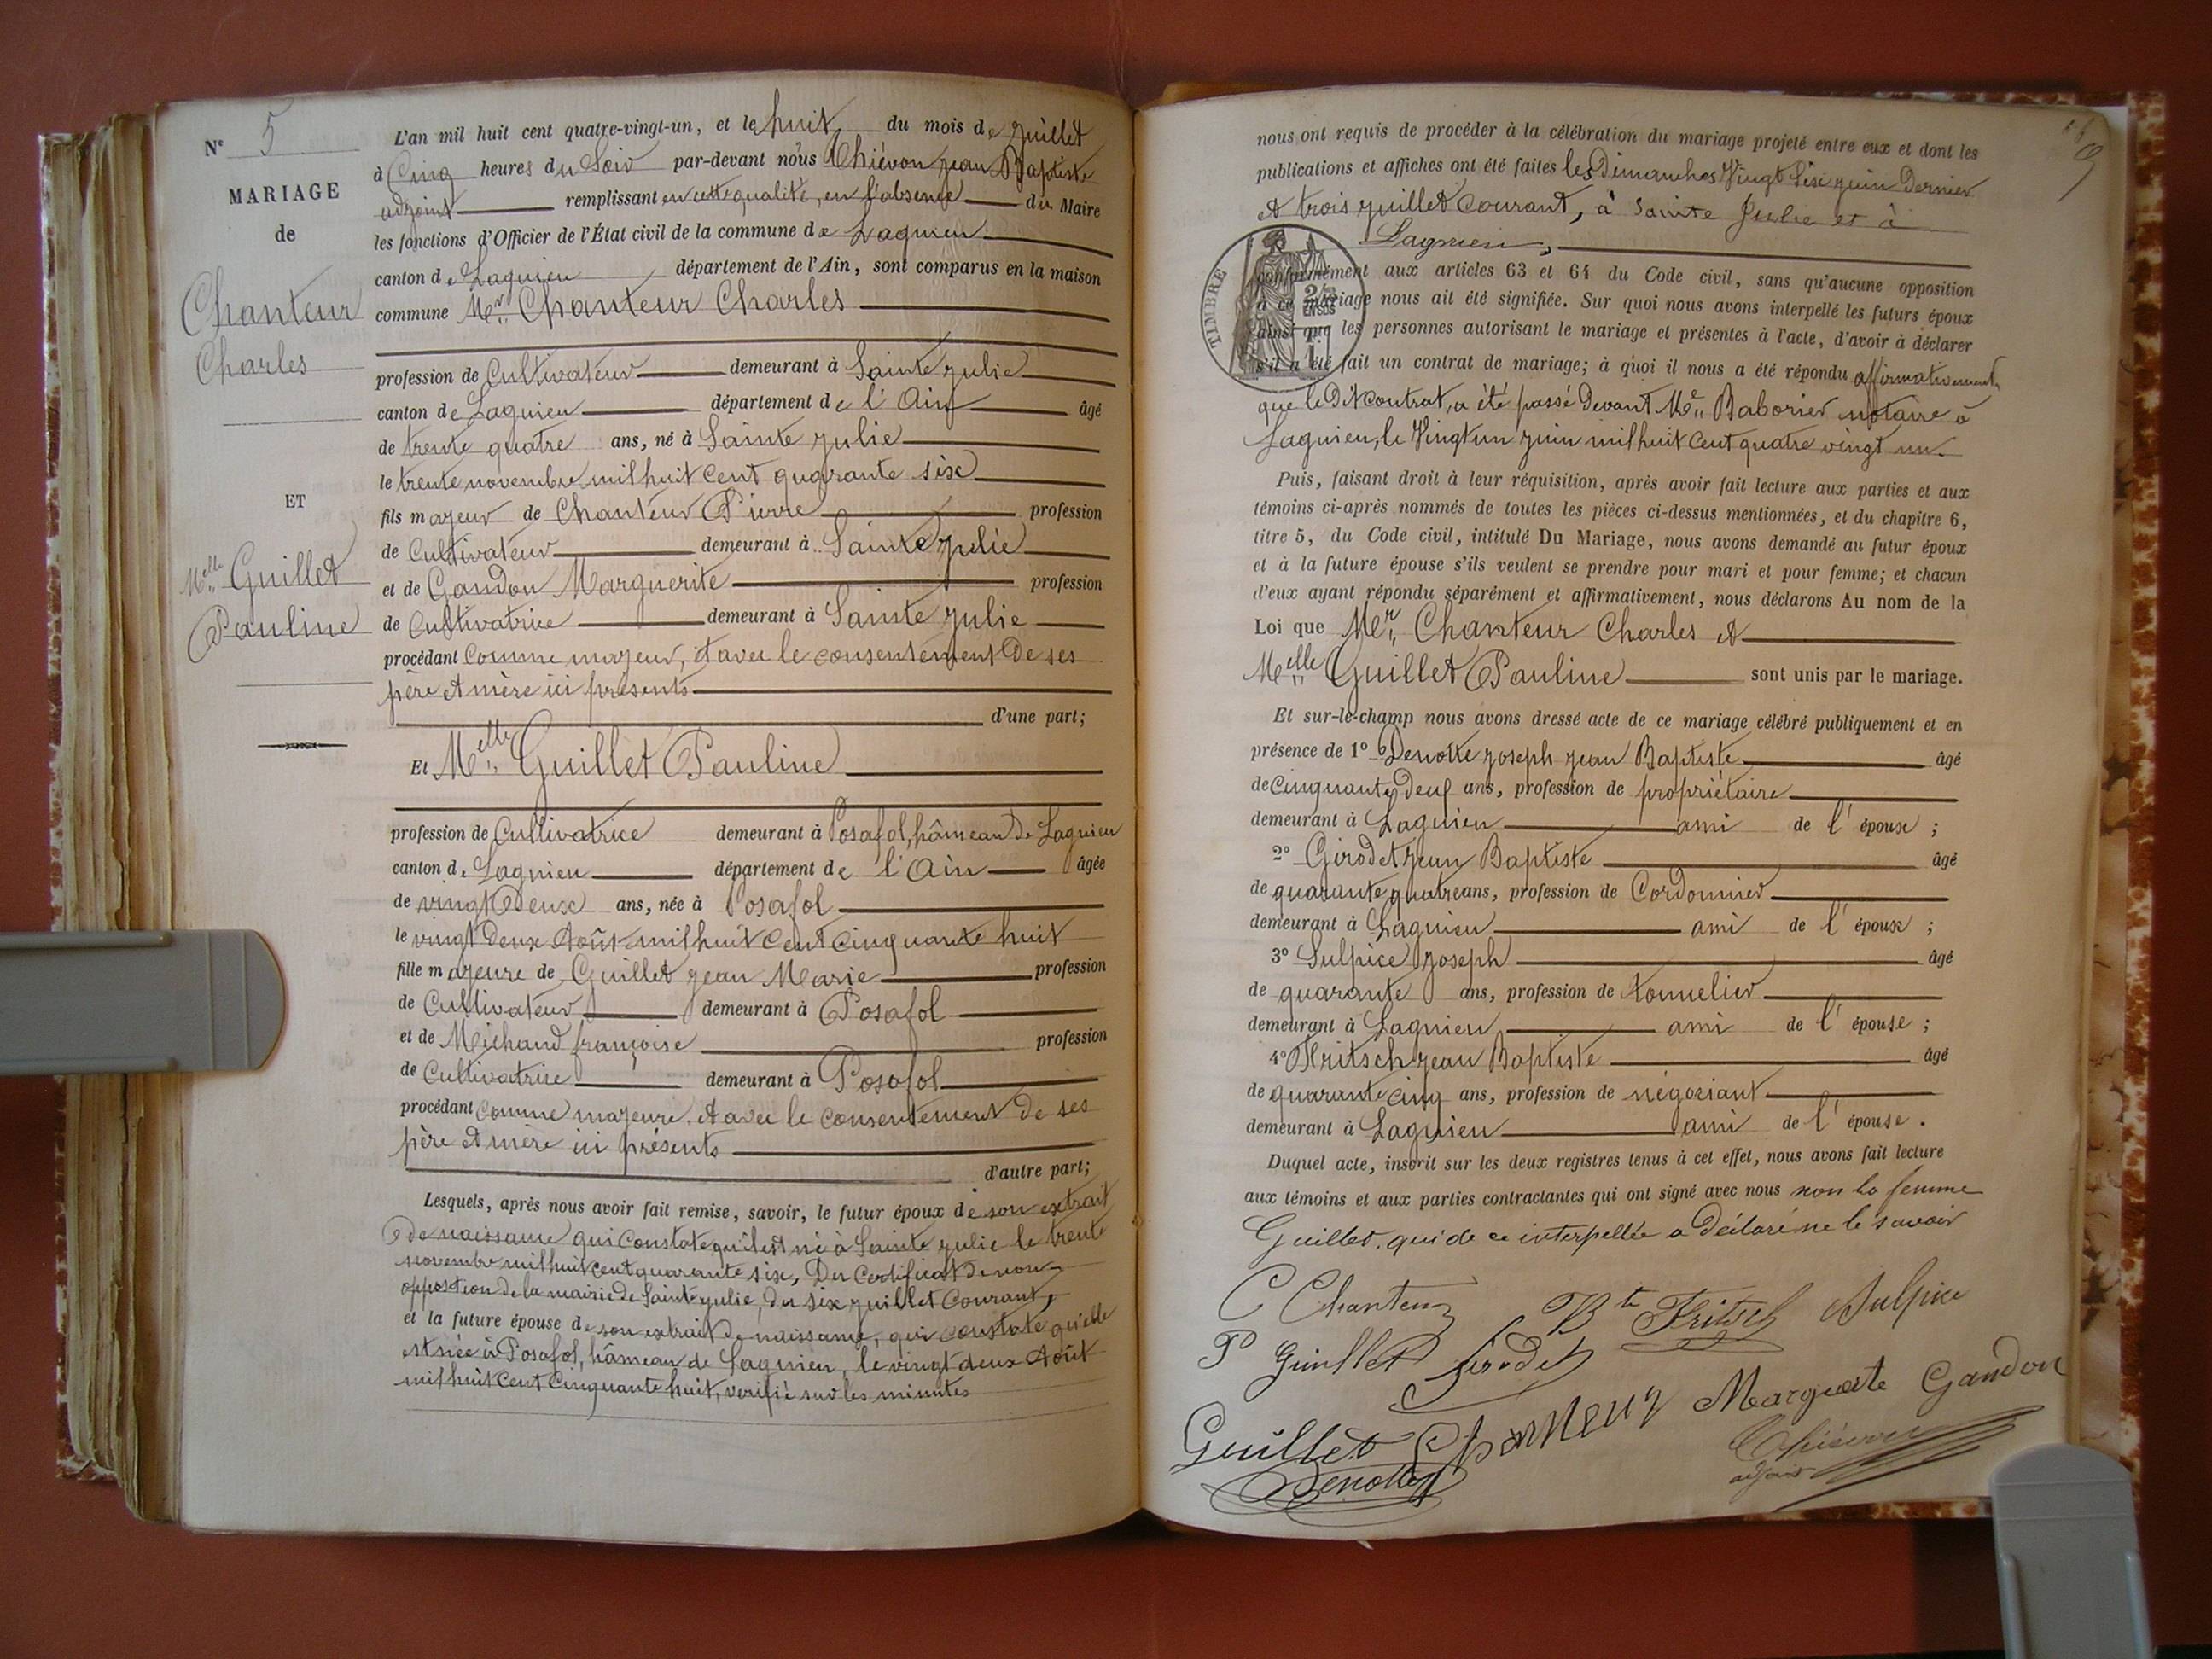 Nº 5
MARIAGE
de
Chanteur
Charles
ET
Melle Guillet
Pauline
L'an mil huit cent quatre-vingt-un, et le huit du mois de juillet
à Cinq heures du Soir par-devant nous Thiévon jean Baptiste
adjoint remplissant en cette qualité, en l'absence du Maire
les fonctions d'Officier de l'État civil de la commune de Lagnieu
canton de Lagnieu département de l'Ain, sont comparus en la maison
commune Mr Chanteur Charles
profession de Cultivateur demeurant à Sainte julie
canton de Lagnieu département de l'Ain âgé
de trente quatre ans, né à Sainte julie
le trente novembre mil huit cent quarante six
fils majeur de Chanteur Pierre profession
de Cultivateur demeurant à Sainte julie
et de Gandon Marguerite profession
de Cultivatrice demeurant à Sainte julie
procédant comme majeur, et avec le consentement de ses
père et mère ici présents
d'une part;
Et Melle Guillet Pauline
profession de Cultivatrice demeurant à Posafol, hâmeau de Lagnieu
canton de Lagnieu département de l'Ain âgée
de vingt deux ans, née à Posafol
le vingt deux Août mil huit cent cinquante huit
fille majeure de Guillet jean Marie profession
de Cultivateur demeurant à Posafol
et de Michaud françoise profession
de Cultivatrice demeurant à Posafol
procédant comme majeure et avec le consentement de ses
père et mère ici présents
d'autre part;
Lesquels, après nous avoir fait remise, savoir, le futur époux de son extrait
de naissance qui constate qu'il est né à Sainte julie le trente
novembre mil huit cent quarante six, Du Certificat de non
opposition de la mairie de Sainte julie, du six juillet courant,
et la future épouse de son extrait de naissance, qui constate qu'elle
est née à Posafol, hâmeau de Lagnieu, le vingt deux Août
mil huit cent cinquante huit, verifié sur les minutes
nous ont requis de procéder à la célébration du mariage projeté entre eux et dont les
publications et affiches ont été faites les Dimanches Vingt Six juin Dernier
et trois juillet courant, à Sainte Julie et à
Lagnieu,
TIMBRE
conformément aux articles 63 et 64 du Code civil, sans qu'aucune opposition
à ce mariage nous ait été signifiée. Sur quoi nous avons interpellé les futurs époux
ainsi que les personnes autorisant le mariage et présentes à l'acte, d'avoir à déclarer
s'il a été fait un contrat de mariage; à quoi il nous a été répondu affirmativement,
que le Dit contrat, a été passé devant Me Baborier notaire à
Lagnieu, le Vingt un juin mil huit cent quatre vingt un.
Puis, faisant droit à leur réquisition, après avoir fait lecture aux parties et aux
témoins ci-après nommés de toutes les pièces ci-dessus mentionnées, et du chapitre 6,
titre 5, du Code civil, intitulé Du Mariage, nous avons demandé au futur époux
et à la future épouse s'ils veulent se prendre pour mari et pour femme; et chacun
d'eux ayant répondu séparément et affirmativement, nous déclarons Au nom de la
Loi que Mr Chanteur Charles et
Melle Guillet Pauline sont unis par le mariage.
Et sur-le-champ nous avons dressé acte de ce mariage célébré publiquement et en
présence de 1º Denolle joseph jean Baptiste âgé
de cinquante deux ans, profession de propriétaire
demeurant à Lagnieu ami de l'épouse;
2º Girodet jean Baptiste âgé
de quarante quatre ans, profession de Cordonnier
demeurant à Lagnieu ami de l'épouse;
3º Sulpice joseph âgé
de quarante ans, profession de tonnelier
demeurant à Lagnieu ami de l'épouse;
4º Fritsch jean Baptiste âgé
de quarante cinq ans, profession de négociant
demeurant à Lagnieu ami de l'épouse.
Duquel acte, inscrit sur les deux registres tenus à cet effet, nous avons fait lecture
aux témoins et aux parties contractantes qui ont signé avec nous non la femme
Guillet, qui de ce interpellée a déclaré ne le savoir
C Chanteur Bte Fritsch Sulpice
P Guillet Girodet
Guillet Chanteur Marguerite Gandon
Denolle Thiévon
adjoint